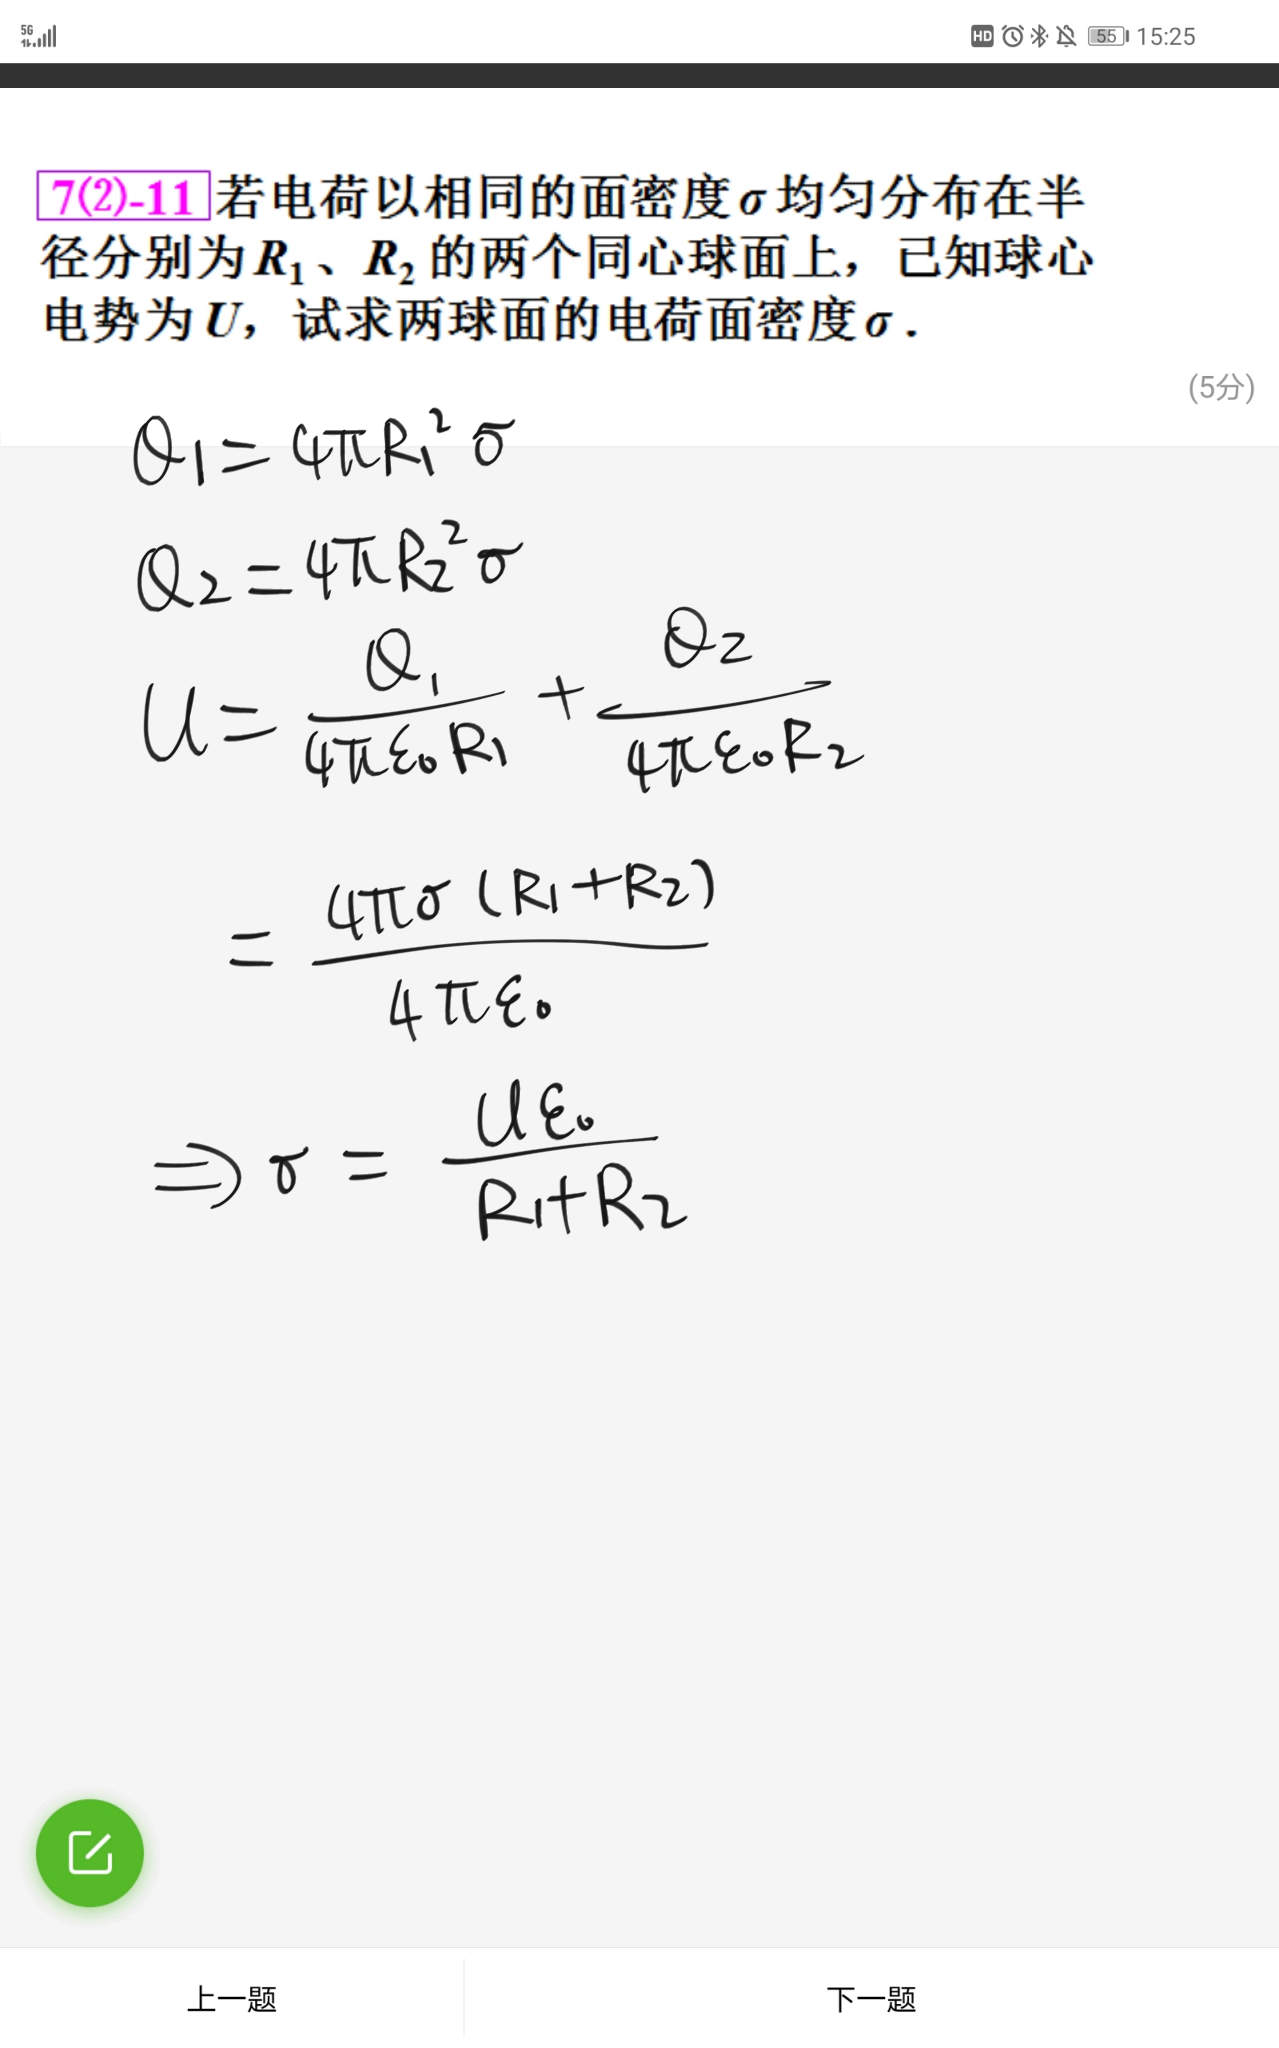 5G HD 55 15:25
7(2)-11 若电荷以相同的面密度σ均匀分布在半
径分别为R₁、R₂的两个同心球面上，已知球心
电势为U，试求两球面的电荷面密度σ．
(5分)
Q1=4πR₁²σ
Q2=4πR₂²σ
U=Q₁/4πε₀R₁+Q₂/4πε₀R₂
=4πσ(R₁+R₂)/4πε₀
⇒σ=Uε₀/R₁+R₂
上一题 下一题